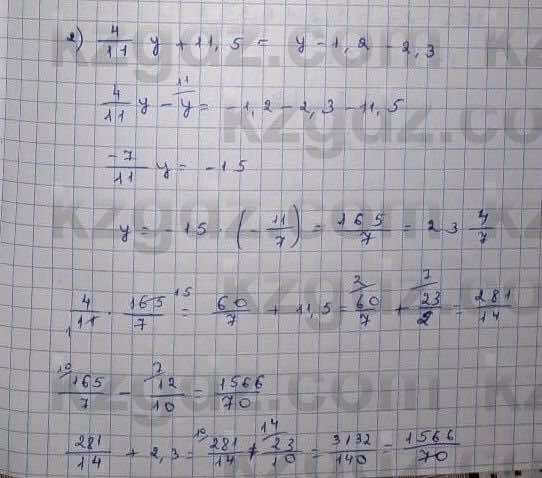 2) 4/11 y + 11,5 = y - 1,2 - 2,3
4/11 y - 11/ y = -1,2 - 2,3 - 11,5
-7/11 y = -15
y = -15 · (-11/7) = 165/7 = 23 4/7
4/11 · 165/7 15 = 60/7 + 11,5 = 2/ 60/7 + 7/ 23/2 = 281/14
10/ 165/7 - 7/ 12/10 = 1566/70
281/14 + 2,3 = 10/ 281/14 + 14/ 23/10 = 3132/140 = 1566/70
kzgdz.com